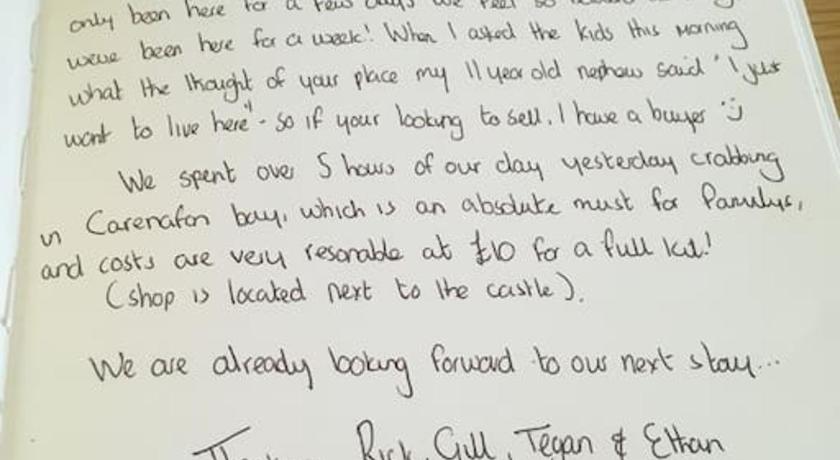 only been here for a few days we feel so
weve been here for a week! When I asked the kids this morning
what the thought of your place my 11 year old nephew said "I just
want to live here" - so if your looking to sell, I have a buyer :)
We spent over 5 hours of our day yesterday crabbing
in Carenafon bay, which is an absolute must for familys,
and costs are very resonable at £10 for a full kit!
(shop is located next to the castle).
We are already looking forward to our next stay...
Rick, Gill, Tegan & Ethan